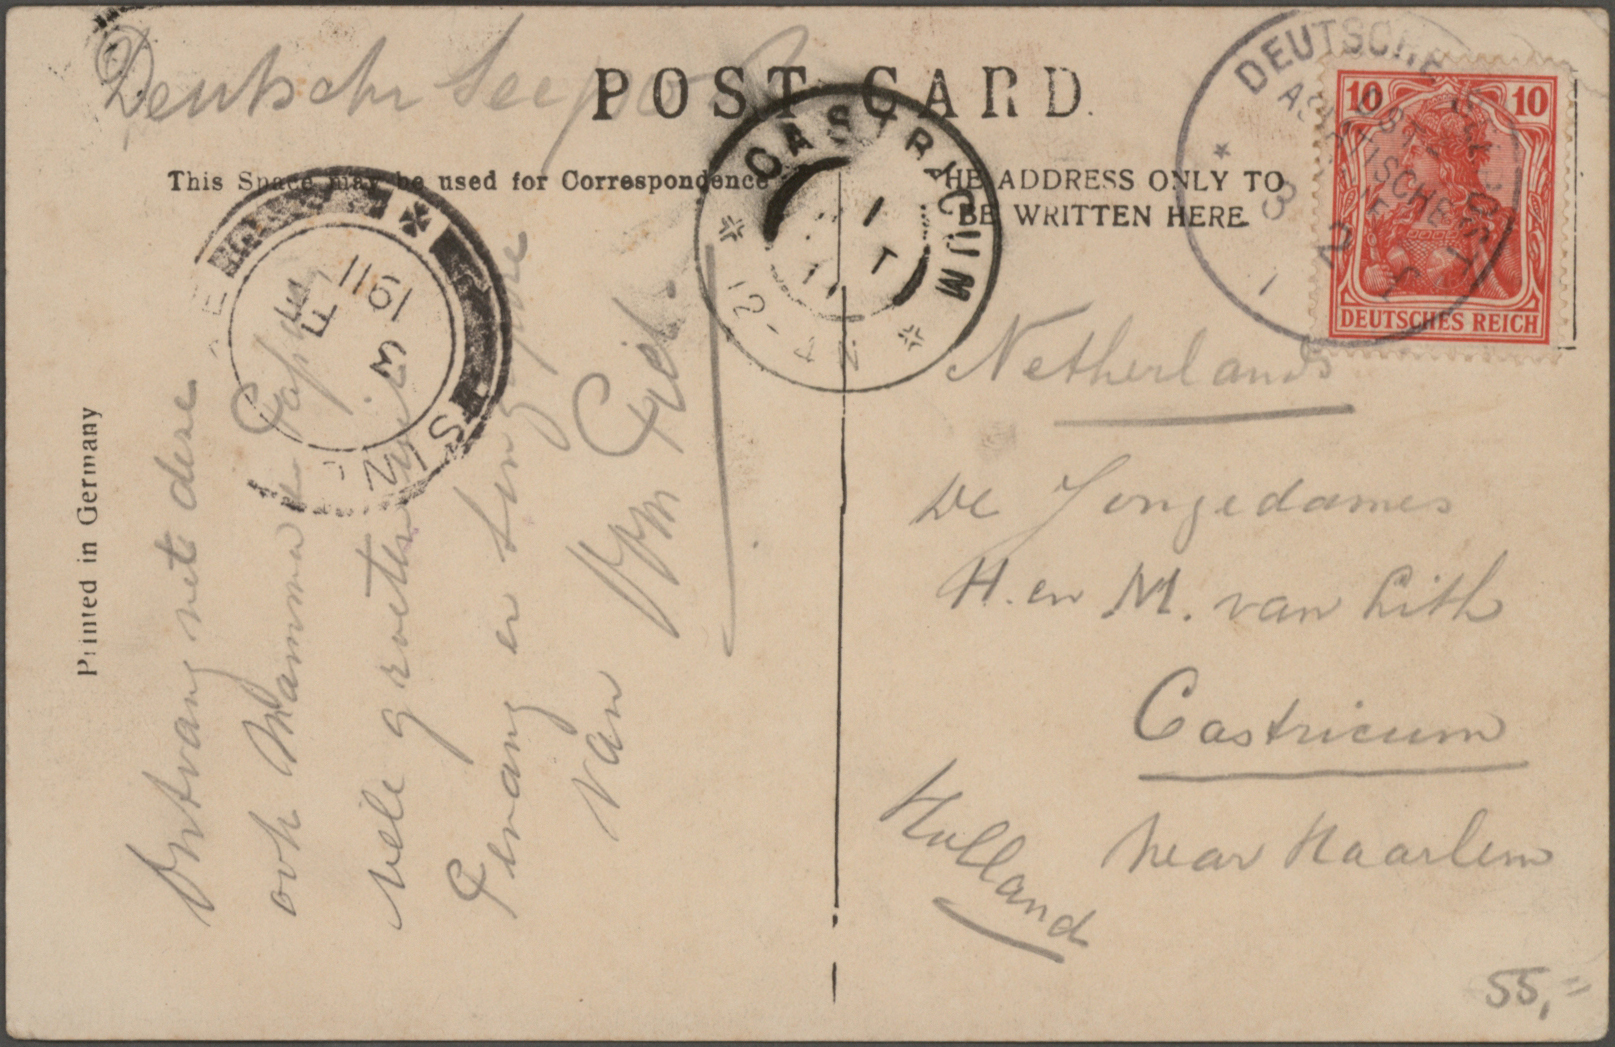 Deutsche Seepost
POST CARD
This Space may be used for Correspondence
THE ADDRESS ONLY TO
BE WRITTEN HERE
DEUTSCHE
OSTASIATISCHE
10 10
DEUTSCHES REICH
CASTRICUM
12-4 N
SIN
Printed in Germany
Ontvang met deze
ook Mamma & Papa de
vele groeten uit
Penang en Singapore
van
Netherlands
De Jongedames
H. en M. van Lith
Castricum
near Haarlem
Holland
55,=